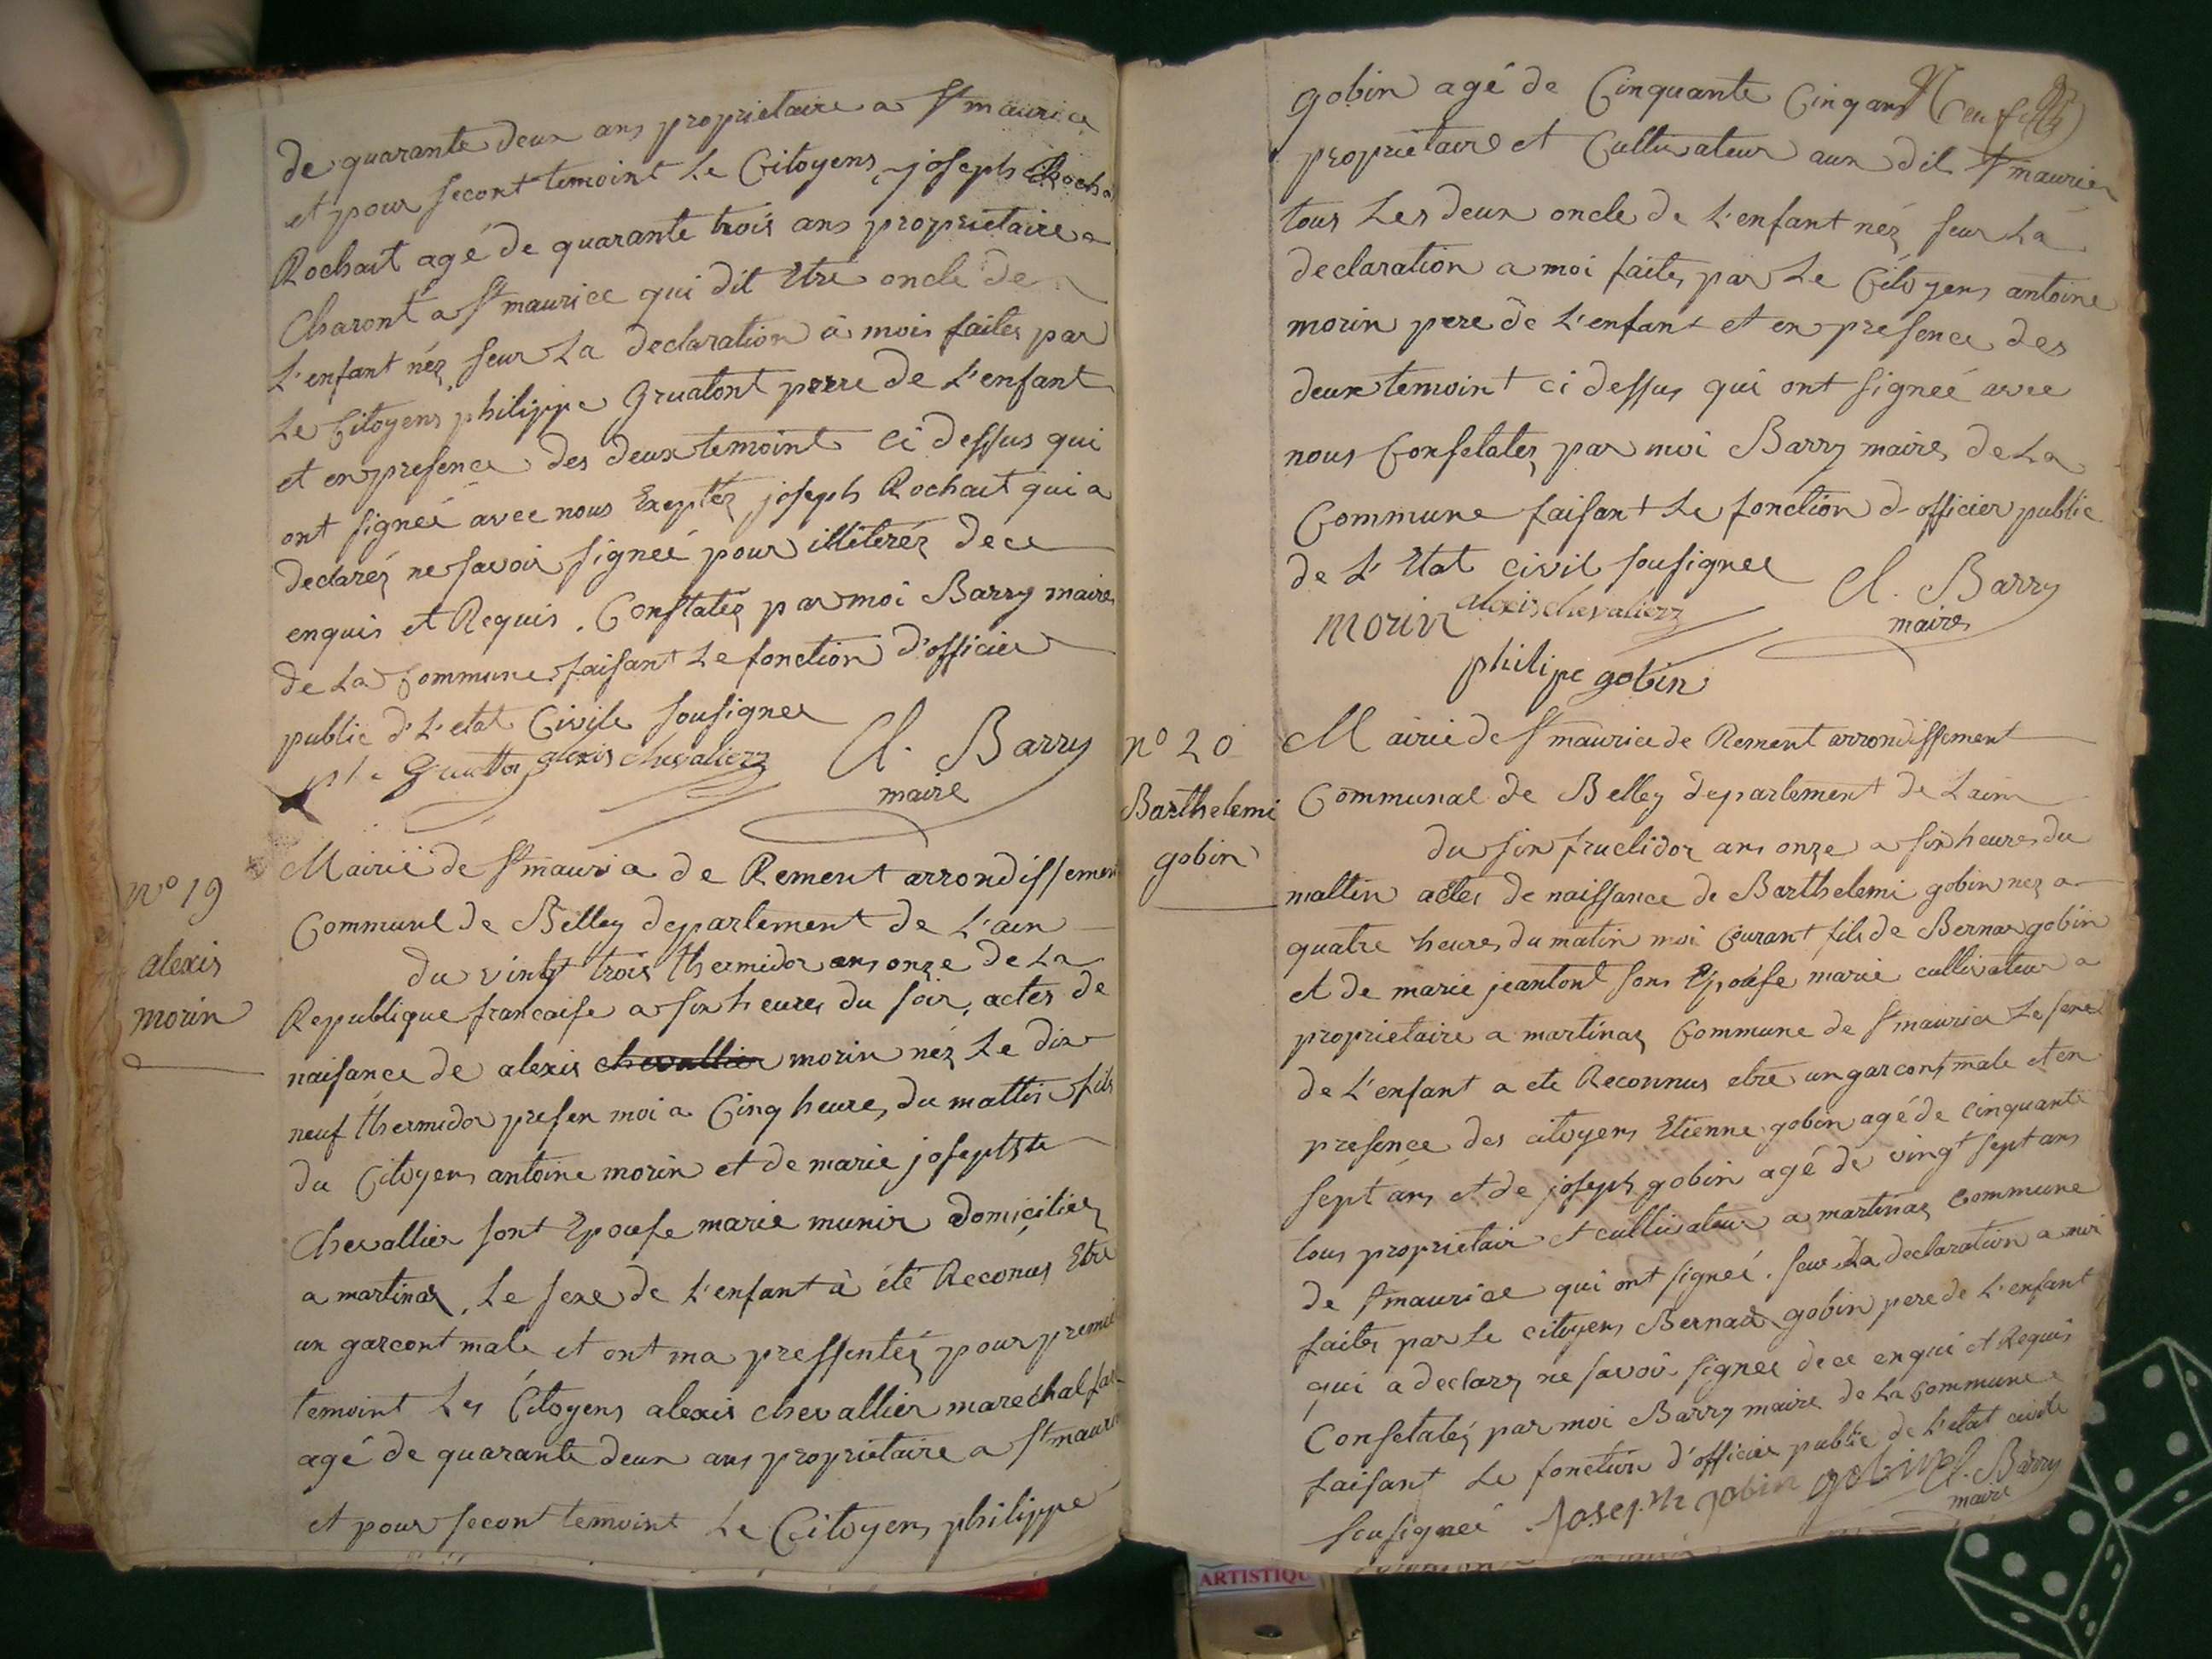 de quarante deux ans proprietaire a St maurice
et pour secont temoint Le Citoyens joseph
Rochait agé de quarante trois ans proprietaire a
Charont a St maurice qui dit Etre oncle de
L'enfant néz seur La declaration à mois faites par
Le Citoyens philippe Gruatont perre de L'enfant
et en presence des deux temoint ci dessus qui
ont signeé avec nous Exeptéz joseph Rochait qui a
declaréz ne savoir signeé pour illiteréz de ce
enquis et Requis. Constatéz par moi Barry maire
de La Commune faisant Le fonction d'officier
public d'L'etat Civile sousignee
alexis chevalier Cl. Barry
maire
n° 19
alexis
morin
Mairie de St maurice de Rement arrondissement
Communl de Belley departement de L'ain
du vingt trois thermidor ans onze de La
Republique francaise a six heures du soir, actes de
naisance de alexis chevallier morin néz Le dix
neuf thermidor presen moi a Cinq heures du mattin fils
du Citoyens antoine morin et de marie josephte
Chevallier sont Epouse marie munir domiciliez
a martinaz, Le sexe de L'enfant à été Reconus Etre
un garcont male et ont ma pressentéz pour premier
temoint Les Citoyens alexis chevallier marechal
agé de quarante deux ans proprietaire a St maurice
et pour secont temoint Le Citoyens philippe
gobin agé de Cinquante Cinq ans
proprietaire et Cultivateur aux dit St maurice
tous Les deux oncle de L'enfant néz seur La
declaration a moi faites par Le Citoyens antoine
morin pere de L'enfant et en presence des
deux temoint ci dessus qui ont signeé avec
nous Consetatez par moi Barry maire de La
Commune faisant Le fonction d'officier public
de L'Etat civil sousignee
morin alexis chevalier Cl. Barry
maire
philipe gobin
n° 20
Barthelemi
gobin
Mairie de St maurice de Rement arrondissement
Communal de Belley departement de Lain
du six fructidor ans onze a six heures du
mattin actes de naissance de Barthelemi gobin nez a
quatre heures du matin moi Courant fils de Bernar gobin
et de marie jeantont sons Epouse marie cultivateur a
proprietaire a martinaz Commune de St maurice Le sexe
de L'enfant a ete Reconnus etre un garcont male et en
presence des citoyens Etienne gobin agé de cinquante
sept ans et de joseph gobin agé de vingt sept ans
tous proprietair et cultivateur a martinaz commune
de St maurice qui ont signeé. seur La declaration a moi
faites par Le citoyens Bernar gobin pere de L'enfant
qui a declarez ne savoir signee de ce enqui et Requis
Consetatéz par moi Barry maire de La commune
faisant Le fonction d'officier public de L'etat civile
sousigneé Joseph gobin gobin Cl. Barry
maire
ARTISTIQU